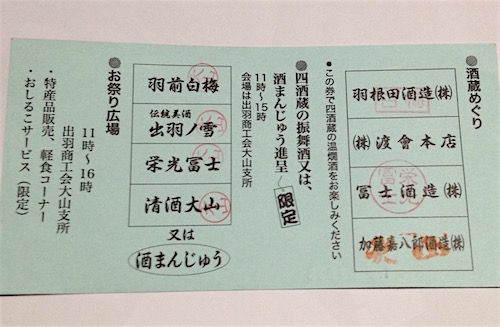 酒蔵めぐり
羽根田酒造㈱
㈱渡會本店
冨士酒造㈱
加藤嘉八郎酒造㈱
・この券で四酒蔵の温燗酒をお楽しみください
四酒蔵の振舞酒又は、
酒まんじゅう進呈
限定
11時〜15時
会場は出羽商工会大山支所
羽前白梅
伝統美酒
出羽ノ雪
栄光冨士
清酒大山
又は
酒まんじゅう
お祭り広場
11時〜16時
出羽商工会大山支所
・特産品販売、軽食コーナー
・おしるこサービス（限定）